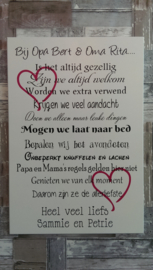 Bij Opa Bert & Oma Rita...
Is het altijd gezellig
Zijn we altijd welkom
Worden we extra verwend
Krijgen we veel aandacht
Doen we alleen maar leuke dingen
Mogen we laat naar bed
Bepalen wij het avondeten
Onbeperkt knuffelen en lachen
Papa en Mama's regels gelden hier niet
Genieten we van elk moment
Daarom zijn ze de allerliefste
Heel veel liefs
Sammie en Petrle